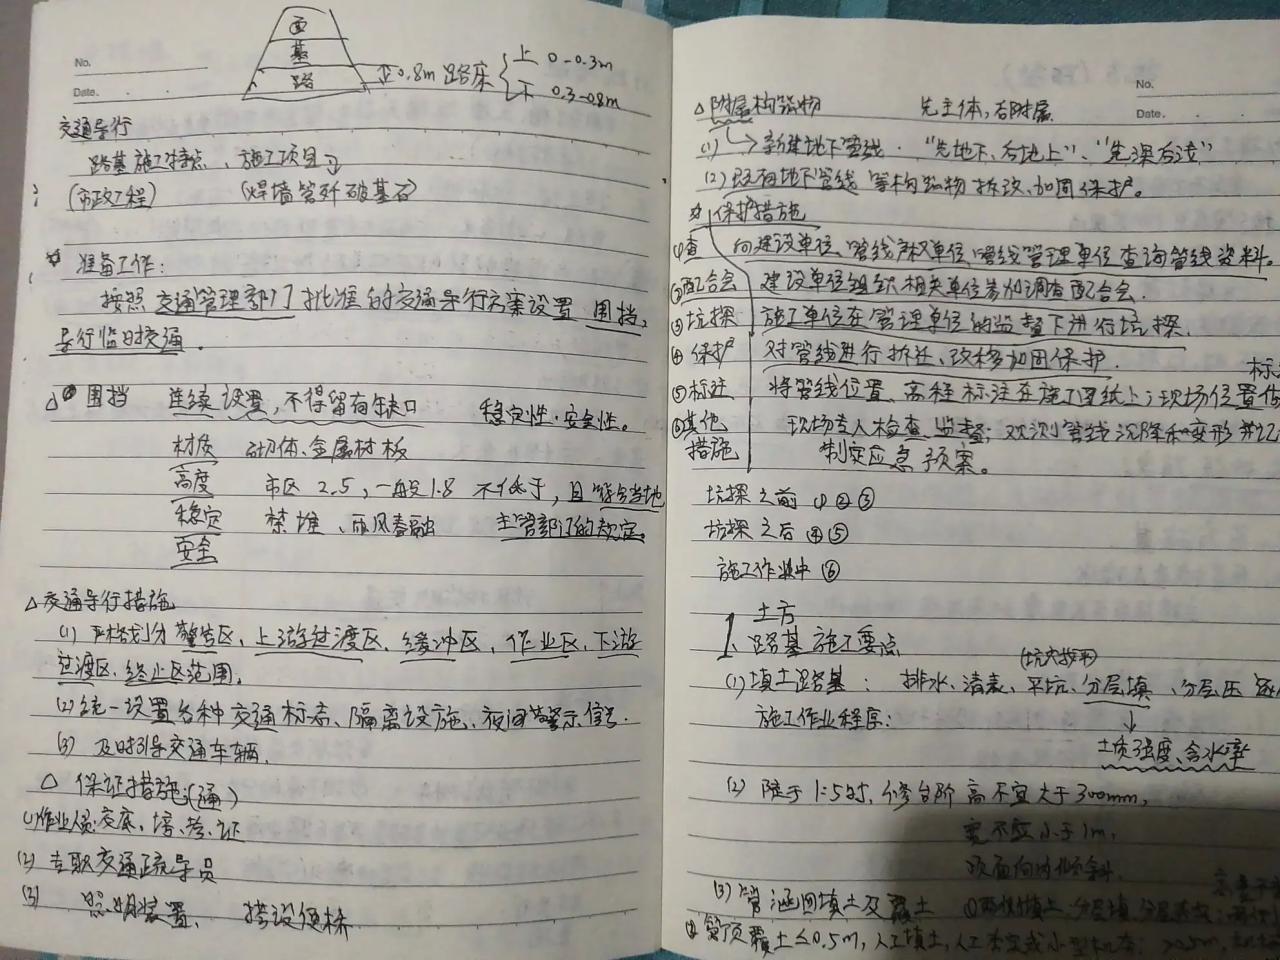 面
基
路
0.8m 路床 上 0-0.3m
下 0.3-0.8m
No.
Date.
交通导行
路基施工特点、施工项目
(市政工程)
准备工作:
按照交通管理部门批准的交通导行方案设置 围挡,
导行临时交通。
△ 围挡 连续设置,不得留有缺口 稳定性·安全性。
材质 砌体、金属材板
高度 市区 2.5,一般1.8 不低于,且符合当地
稳定 禁堆、 主管部门的规定
安全
△交通导行措施
(1) 严格划分警告区、上游过渡区、缓冲区、作业区、下游
过渡区、终止区范围。
(2) 统一设置各种交通标志、隔离设施、夜间警示信号.
(3) 及时引导交通车辆.
△ 保证措施:(通)
(1)作业人员:交底、培、考、证
(2) 专职交通疏导员
(3) 照明装置、 搭设便桥
No.
Date.
△附属构筑物 先主体,后附属
(1) 新建地下管线·“先地下、后地上”、“先深后浅”
(2)既有地下管线 等构筑物拆改、加固保护。
☆ 保护措施
①查 向建设单位、管线产权单位、管线管理单位查询管线资料。
②配合会 建设单位组织相关单位参加调查配合会.
③坑探 施工单位在管理单位的监督下进行坑探.
④保护 对管线进行拆迁、改移加固保护.
标
⑤标注 将管线位置、高程标注在施工图纸上;现场位置
⑥其他 现场专人检查、监督;观测管线沉降和变形并记
措施 制定应急预案。
坑探之前 ①②③
坑探之后 ④⑤
施工作业中 ⑥
土方
1、路基施工要点
(1)填土路基: 排水、清表、平坑、分层填、分层压
施工作业程序:
土质强度、含水率
(2) 陡于1:5时,修台阶 高不宜大于300mm,
宽不应小于1m,
顶面向内倾斜.
(3)管涵回填土及覆土 ①两侧填土
管顶覆土≤0.5m,人工填土,人工夯实或小型机夯